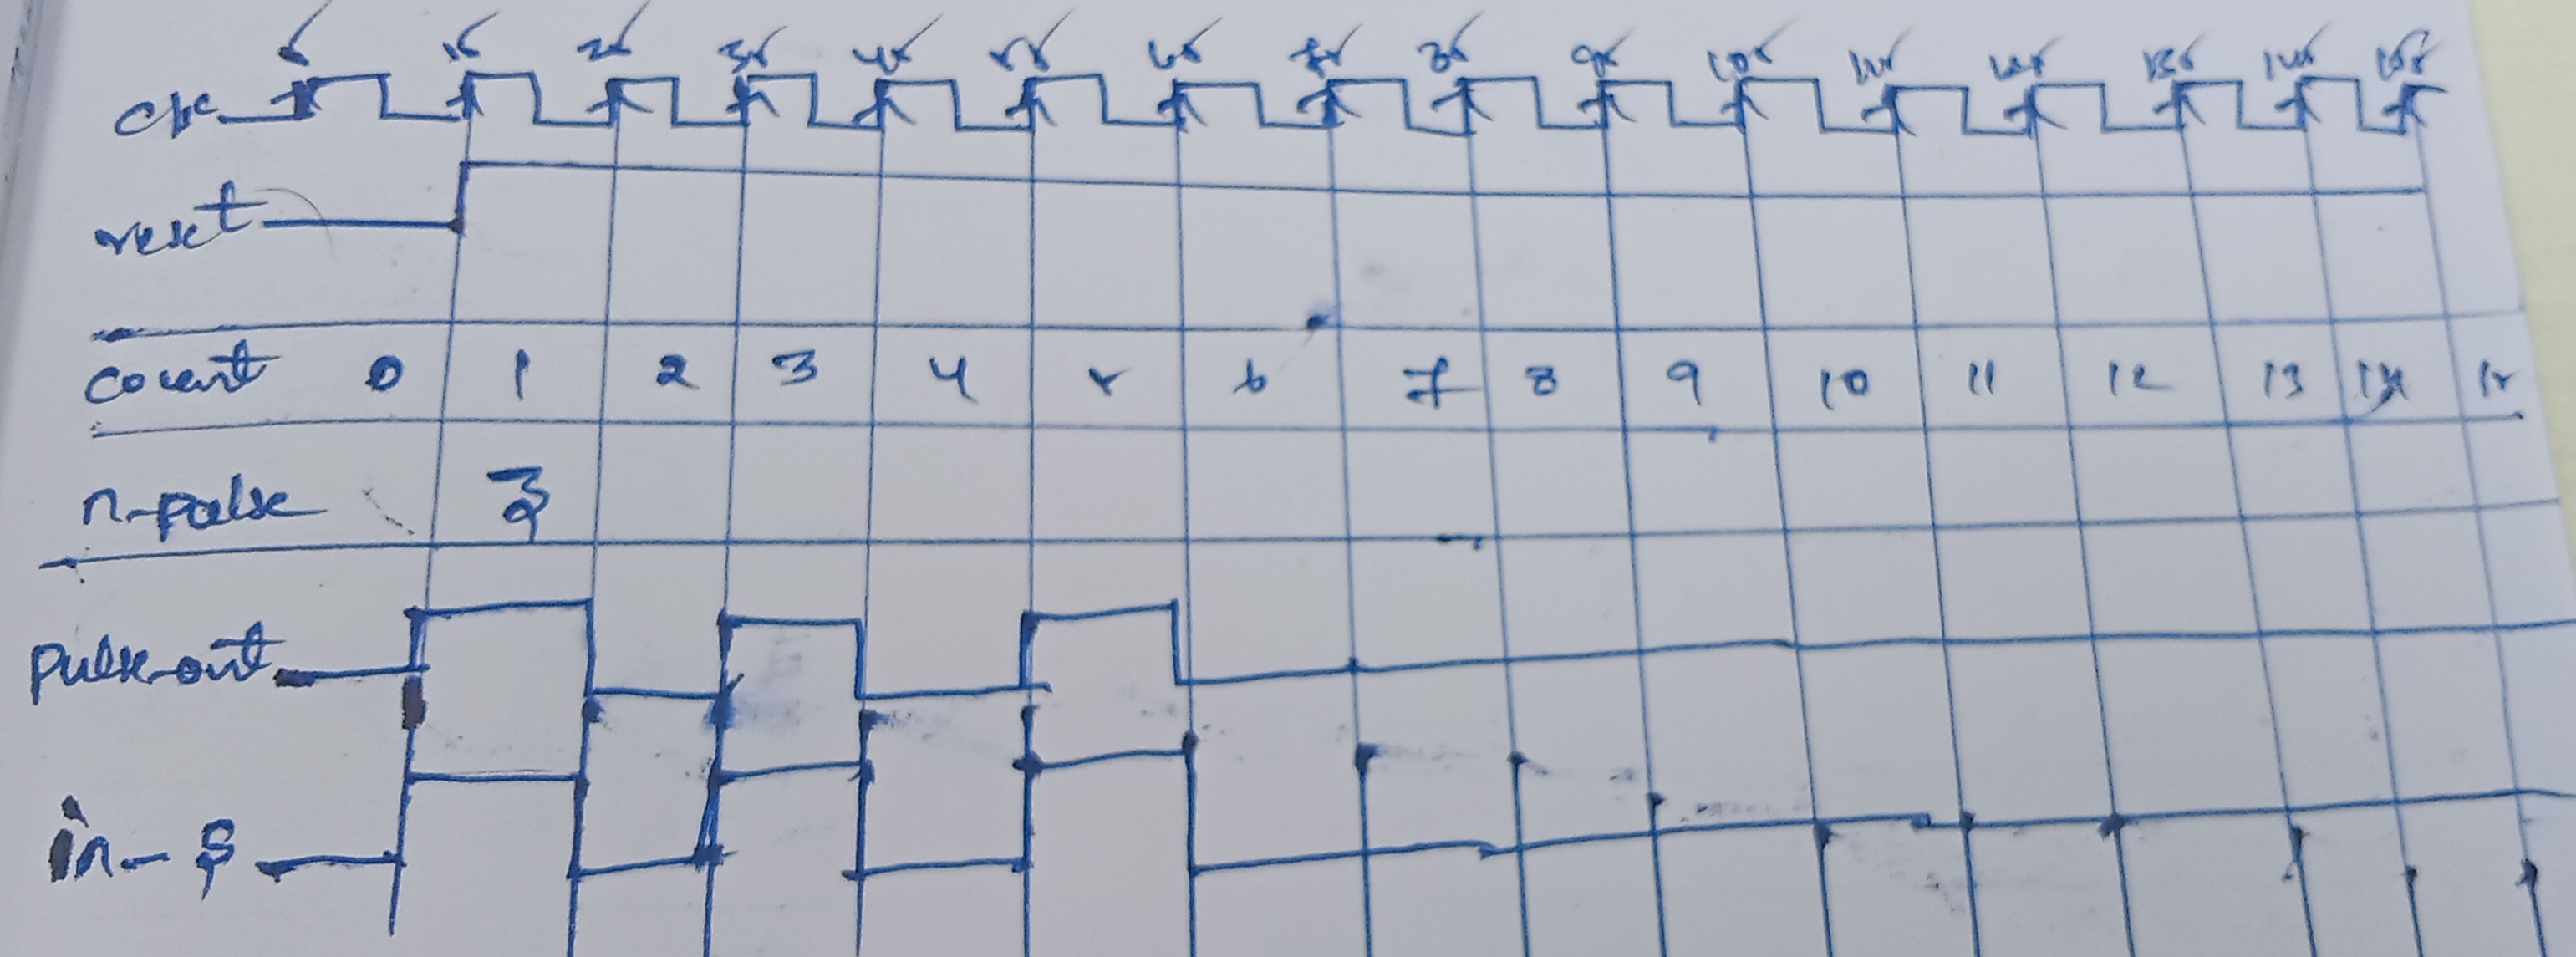 5 15 25 35 45 55 65 75 85 95 105 115 125 135 145 155
clk
reset
count 0 1 2 3 4 5 6 7 8 9 10 11 12 13 14 15
n-pulse 3
pulse-out
in-